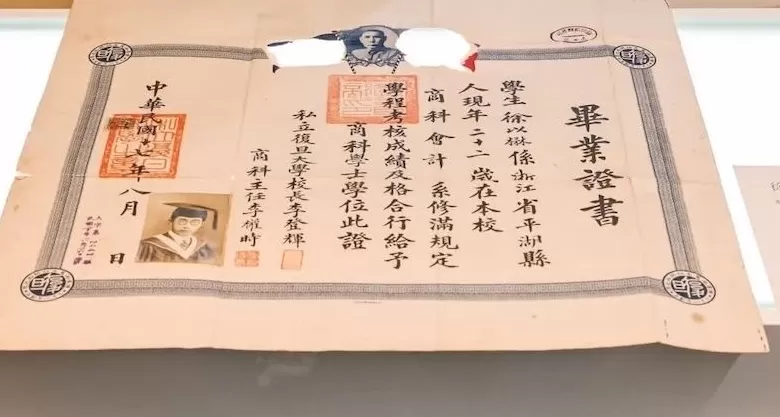 畢業證書
學生徐以楙係浙江省平湖縣
人現年二十一歲在本校
商科會計系修滿規定
學程考核成績及格合行給予
商科學士學位此證
私立復旦大學校長李登輝
商科主任李權時
中華民國十七年八月 日